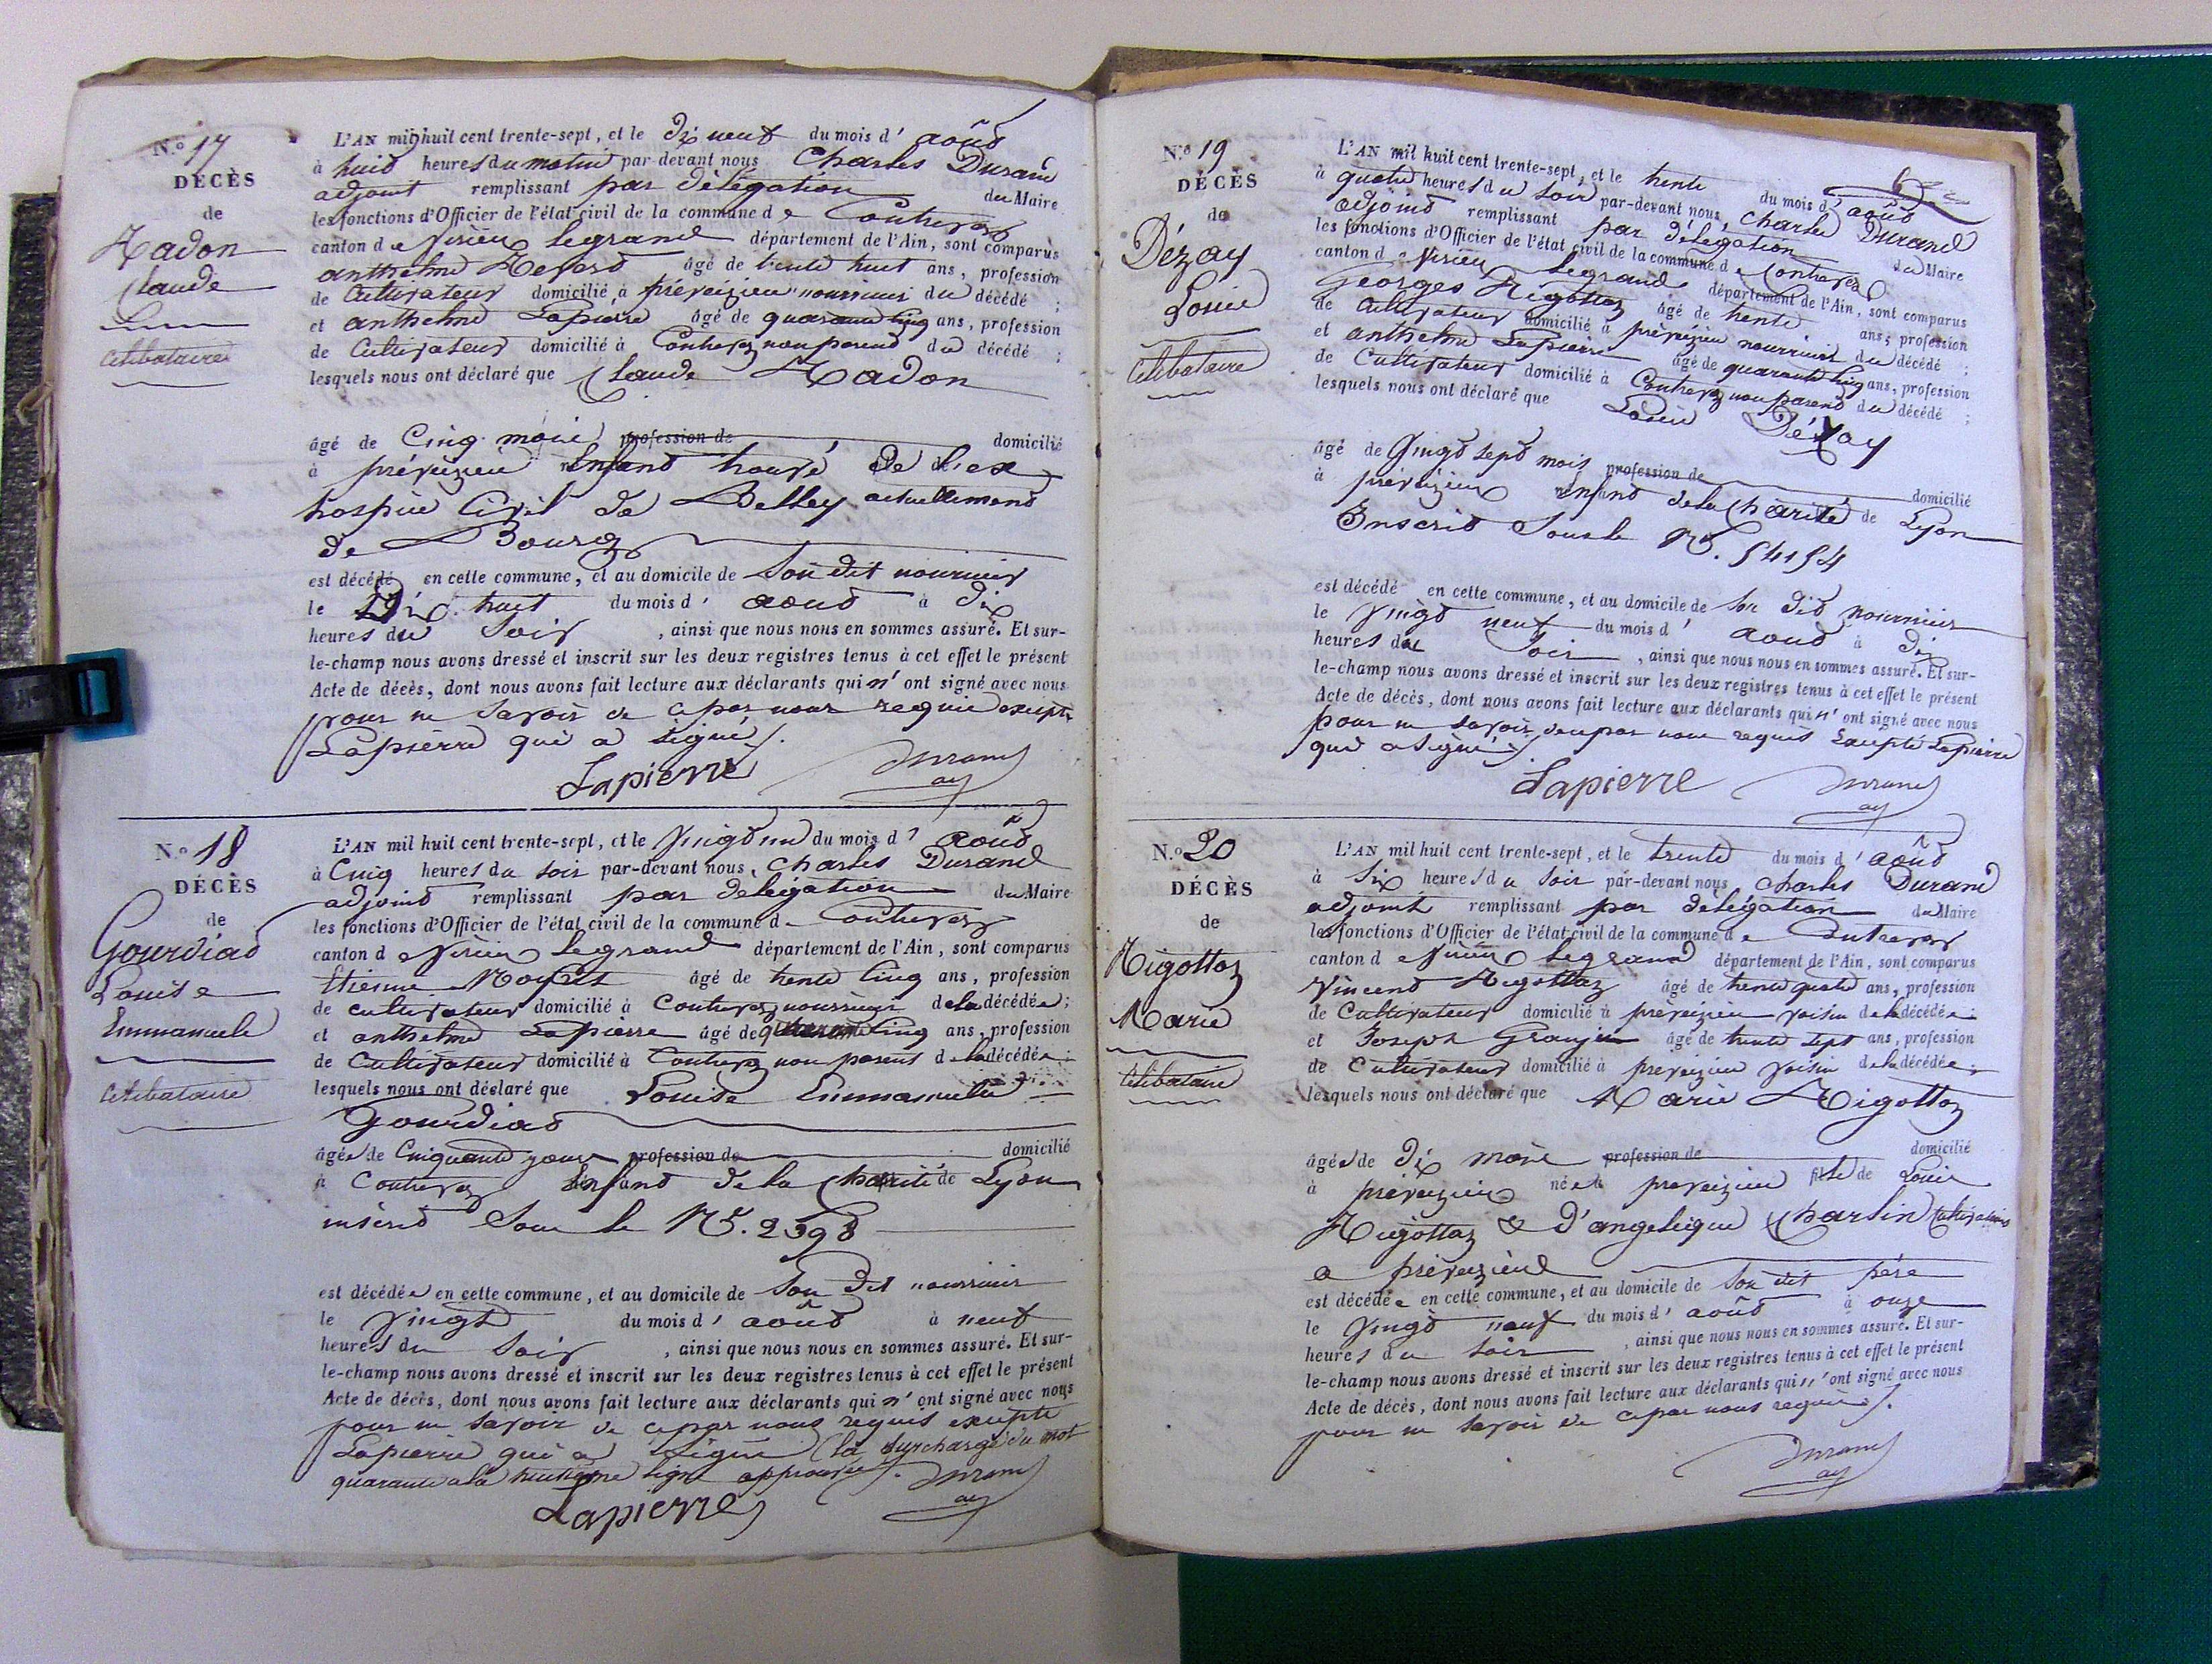 N.o 17
DÉCÈS
de
Radon
Claude
célibataire
L'AN mil huit cent trente-sept, et le dix neuf du mois d' aoûst
à huit heures du matin par-devant nous Charles Durand
adjoint remplissant par délégation du Maire
les fonctions d'Officier de l'état civil de la commune de Contrevoz
canton de Virieu legrand département de l'Ain, sont comparus
anthelme âgé de trente huit ans, profession
de Cultivateur domicilié à préveizieu nourricier du décédé ;
et anthelme Lapierre âgé de quarante cinq ans, profession
de Cultivateur domicilié à Contrevoz non parent du décédé ;
lesquels nous ont déclaré que Claude Radon
âgé de Cinq mois profession de domicilié
à préveizieu Enfant trouvé de l'ex
hospice Civil de Belley actuellement
de Bourg
est décédé en cette commune, et au domicile de Son dit nourricier
le Dix huit du mois d' aoust à dix
heures du Soir , ainsi que nous nous en sommes assuré. Et sur-
le-champ nous avons dressé et inscrit sur les deux registres tenus à cet effet le présent
Acte de décès, dont nous avons fait lecture aux déclarants qui n' ont signé avec nous
pour ne Savoir de ce par nous requis excepté
Lapierre qui a Signé /.
Lapierre Durand adj
N.o 18
DÉCÈS
de
Gourdiat
Louise
Emmanuele
célibataire
L'AN mil huit cent trente-sept, et le Vingt un du mois d' aoûst
à Cinq heures du soir par-devant nous, Charles Durand
adjoint remplissant par delégation du Maire
les fonctions d'Officier de l'état civil de la commune de Contrevoz
canton de Virieu legrand département de l'Ain, sont comparus
Etienne âgé de trente Cinq ans, profession
de cultivateur domicilié à Contrevoz nourricier de la décédée ;
et anthelme Lapierre âgé de quarante Cinq ans, profession
de Cultivateur domicilié à Contrevoz non parent de la décédée ;
lesquels nous ont déclaré que Louise Emmanuele
Gourdiat
âgée de Cinquante jours profession de domicilié
à Contrevoz Enfant de la Charité de Lyon
inscrit Sous le No. 2398
est décédée en cette commune, et au domicile de Son Dit nourricier
le Vingt du mois d' aoûst à neuf
heures du Soir , ainsi que nous nous en sommes assuré. Et sur-
le-champ nous avons dressé et inscrit sur les deux registres tenus à cet effet le présent
Acte de décès, dont nous avons fait lecture aux déclarants qui n' ont signé avec nous
pour ne Savoir de ce par nous requis excepté
Lapierre qui a Signé (la Surcharge du mot
quarante a la huitième ligne approuvée /. Durand adj
Lapierre
N.o 19
DÉCÈS
de
Dézay
Louis
Célibataire
L'AN mil huit cent trente-sept, et le trente du mois d' aoûst
à quatre heures du Soir par-devant nous, Charles Durand
adjoint remplissant par délégation du Maire
les fonctions d'Officier de l'état civil de la commune de Contrevoz
canton de Virieu legrand département de l'Ain, sont comparus
Georges Rigottaz âgé de trente ans, profession
de Cultivateur domicilié à préveizieu nourricier du décédé ;
et anthelme Lapierre âgé de quarante Cinq ans, profession
de Cultivateur domicilié à Contrevoz non parent du décédé ;
lesquels nous ont déclaré que Louis Dézay
âgé de Vingt sept mois profession de domicilié
à préveizieu Enfant de la Charité de Lyon
Inscrit Sous le No. 54154
est décédé en cette commune, et au domicile de Son dit nourricier
le Vingt neuf du mois d' aoust à dix
heures du Soir , ainsi que nous nous en sommes assuré. Et sur-
le-champ nous avons dressé et inscrit sur les deux registres tenus à cet effet le présent
Acte de décès, dont nous avons fait lecture aux déclarants qui n' ont signé avec nous
pour ne Savoir de ce par nous requis Excepté Lapierre
qui a Signé /.
Lapierre Durand adj
N.o 20
DÉCÈS
de
Rigottaz
Marie
Célibataire
L'AN mil huit cent trente-sept, et le trente du mois d' aoûst
à Six heures du Soir par-devant nous Charles Durand
adjoint remplissant par délégation du Maire
les fonctions d'Officier de l'état civil de la commune de Contrevoz
canton de Virieu legrand département de l'Ain, sont comparus
Vincent Rigottaz âgé de trente quatre ans, profession
de Cultivateur domicilié à préveizieu voisin de la décédée ;
et Joseph Granjean âgé de trente sept ans, profession
de Cultivateur domicilié à preveizieu voisin de la décédée ;
lesquels nous ont déclaré que Marie Rigottaz
âgée de dix mois profession de domicilié
à préveizieu née à preveizieu fille de Louis
Rigottaz & D'angelique Charlin Cultivateurs
a préveizieu
est décédée en cette commune, et au domicile de Son dit père
le Vingt neuf du mois d' aoûst à onze
heures du Soir , ainsi que nous nous en sommes assuré. Et sur-
le-champ nous avons dressé et inscrit sur les deux registres tenus à cet effet le présent
Acte de décès, dont nous avons fait lecture aux déclarants qui n' ont signé avec nous
pour ne Savoir de ce par nous requis /.
Durand adj